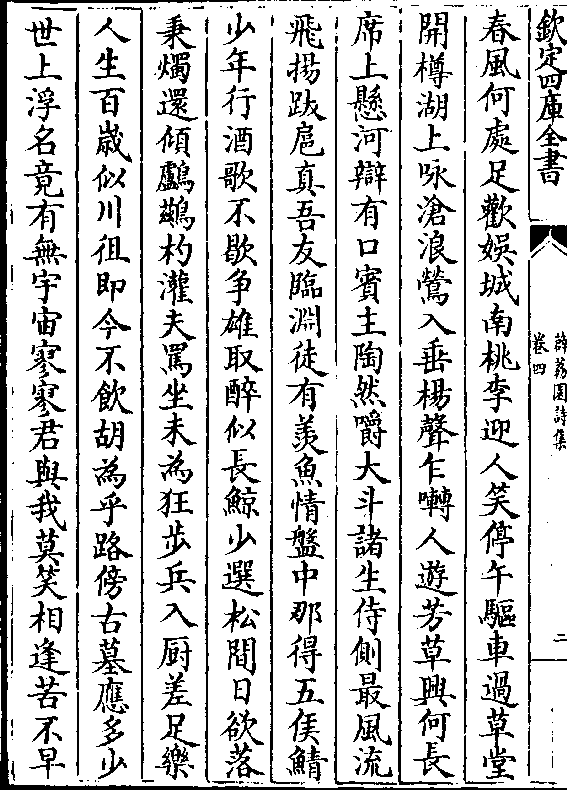 欽定四庫全書
薜荔園詩集
卷四
二
春風何處足歡娛城南桃李迎人笑停午驅車過草堂
開樽湖上咏滄浪鶯入垂楊聲乍囀人遊芳草興何長
席上懸河辯有口賓主陶然嚼大斗諸生侍側最風流
飛揚跋扈真吾友臨淵徒有羡魚情盤中那得五侯鯖
少年行酒歌不歇争雄取醉似長鯨少選松間日欲落
秉燭還傾鸕鷀杓灌夫罵坐未為狂步兵入厨差足樂
人生百歲似川徂即今不飲胡為乎路傍古墓應多少
世上浮名竟有無宇宙寥寥君與我莫笑相逢苦不早